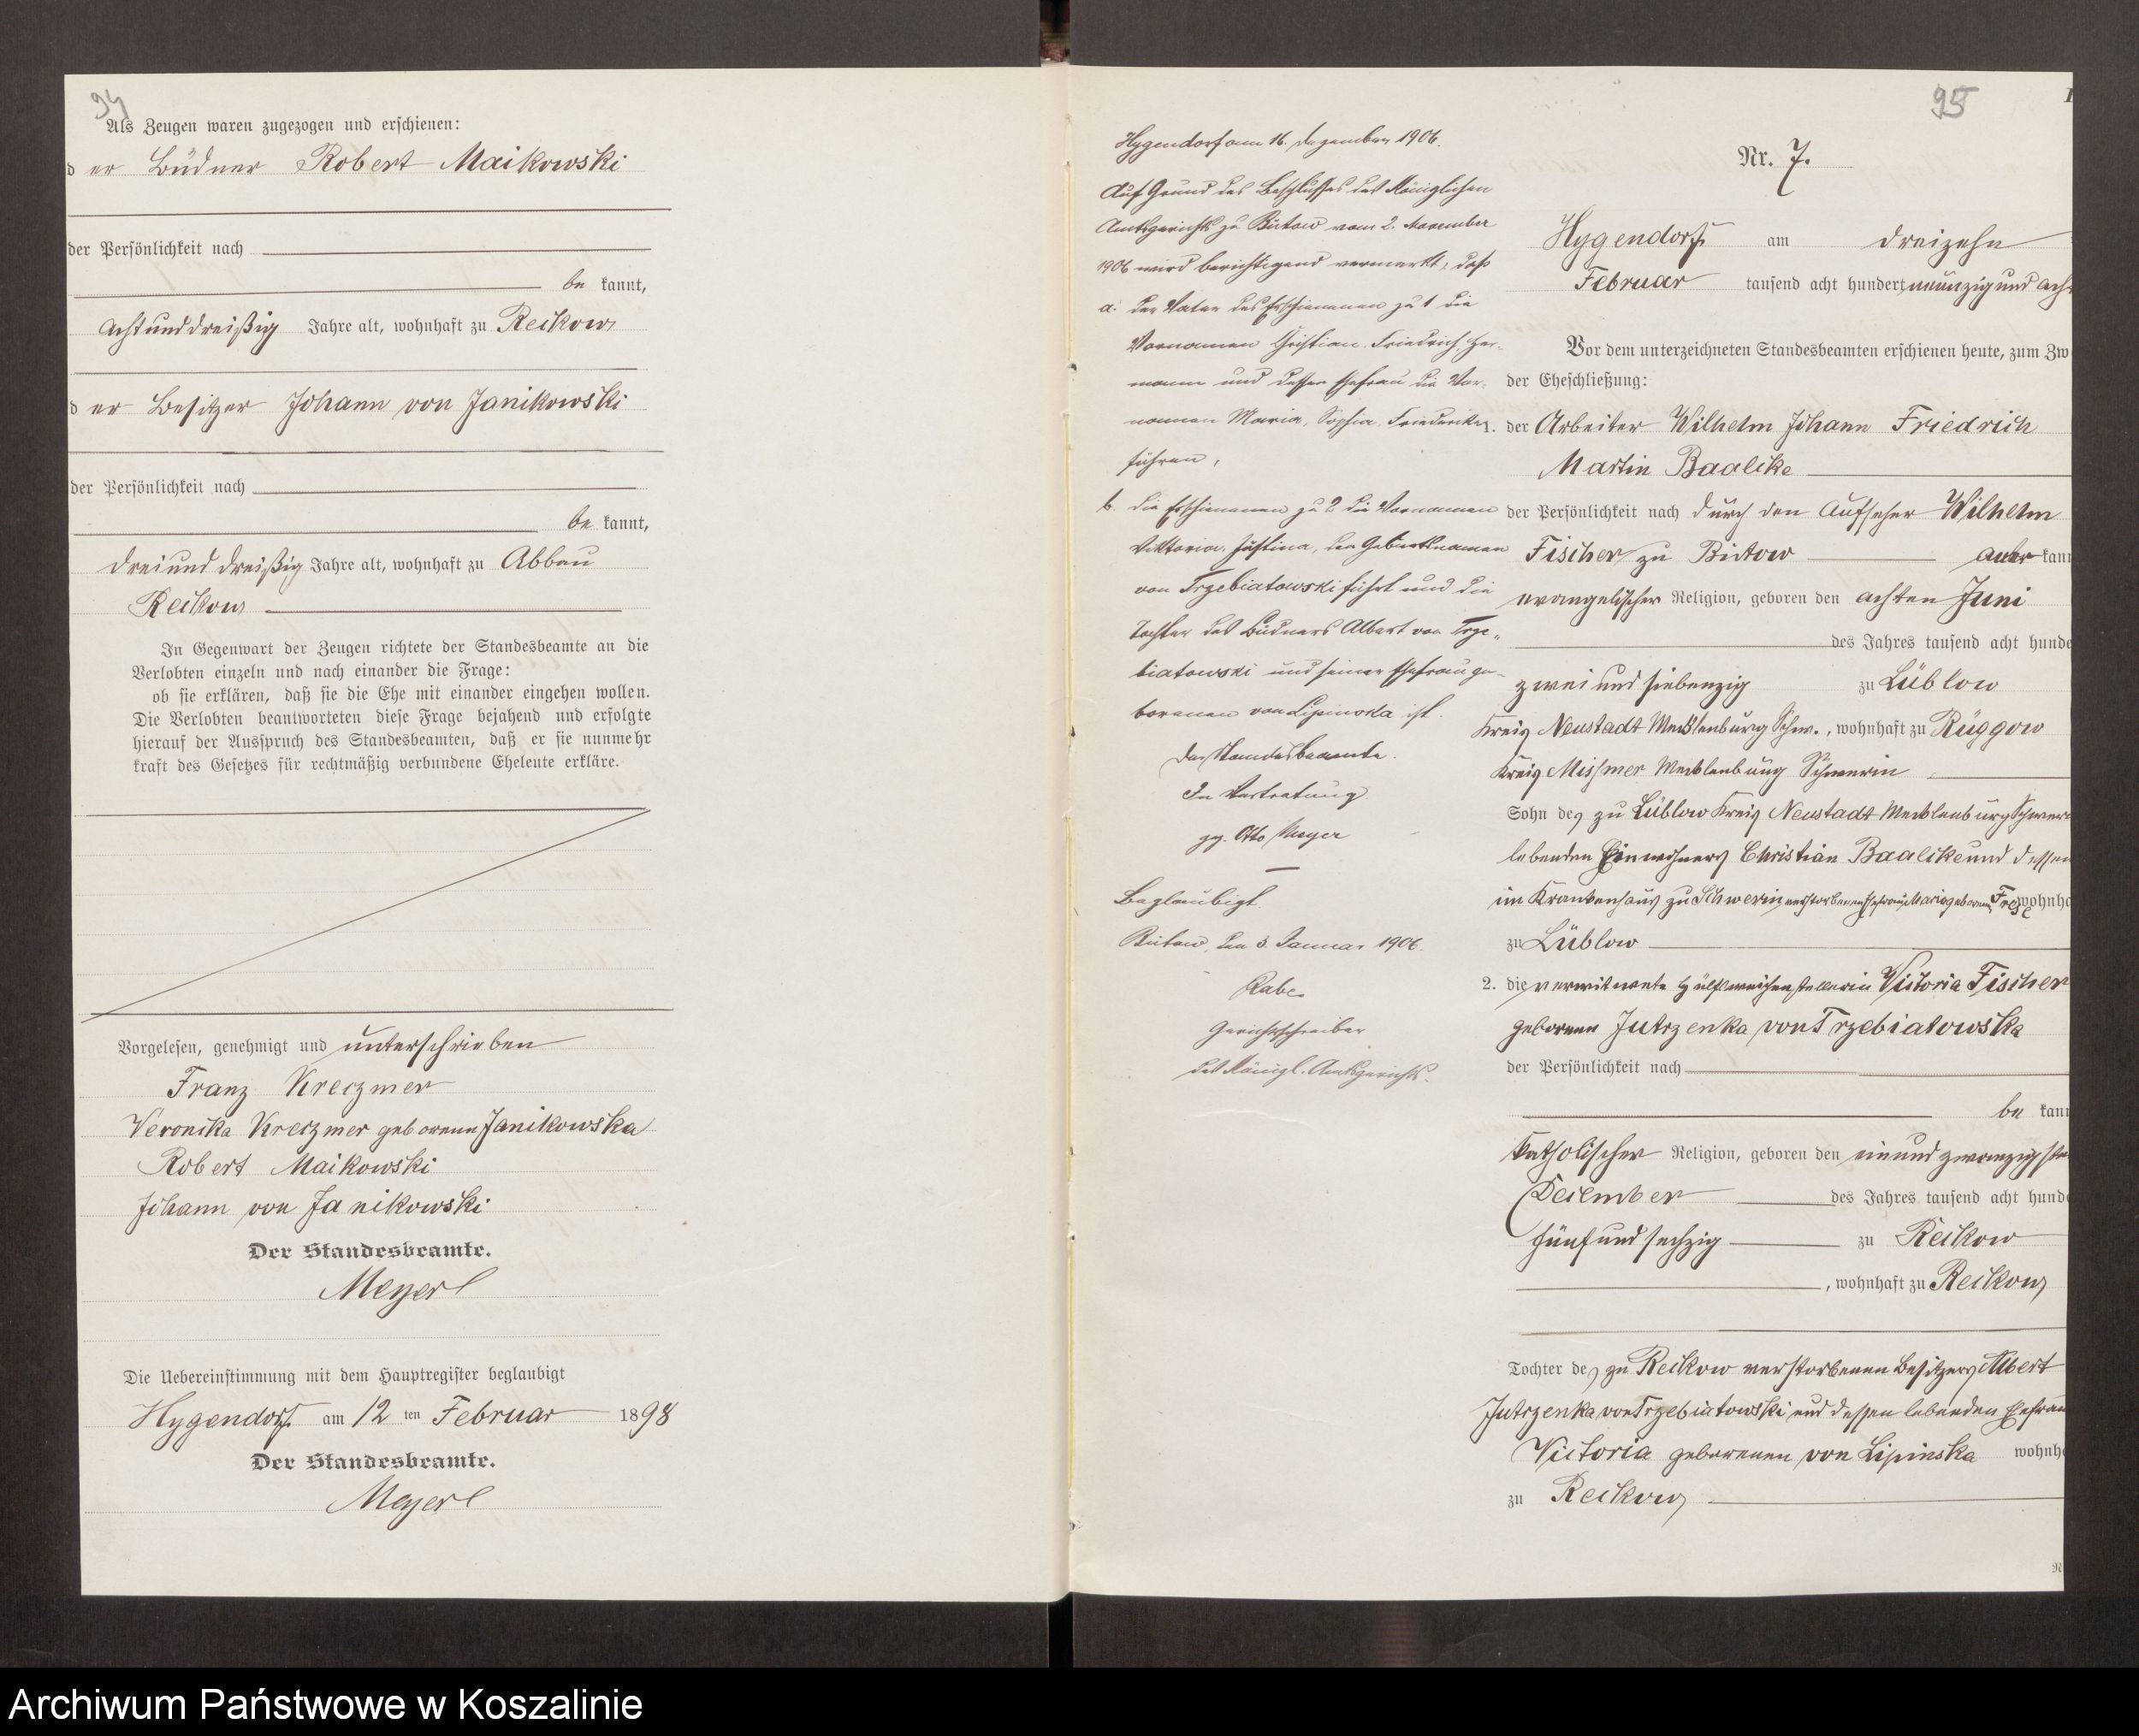 94
Als Zeugen waren zugezogen und erschienen:
d er Büdner Robert Maikowski
der Persönlichkeit nach
be kannt,
achtunddreißig Jahre alt, wohnhaft zu Reckow
d er Besitzer Johann von Janikowski
der Persönlichkeit nach
be kannt,
dreiunddreißig Jahre alt, wohnhaft zu Abbau
Reckow
In Gegenwart der Zeugen richtete der Standesbeamte an die
Verlobten einzeln und nach einander die Frage:
ob sie erklären, daß sie die Ehe mit einander eingehen wollen.
Die Verlobten beantworteten diese Frage bejahend und erfolgte
hierauf der Ausspruch des Standesbeamten, daß er sie nunmehr
kraft des Gesetzes für rechtmäßig verbundene Eheleute erkläre.
Vorgelesen, genehmigt und unterschrieben
Franz Kreczmer
Veronika Kreczmer geborene Janikowska
Robert Maikowski
Johann von Janikowski
Der Standesbeamte.
Meyer
Die Uebereinstimmung mit dem Hauptregister beglaubigt
Hygendorf am 12 ten Februar 1898
Der Standesbeamte.
Meyer
95
Hygendorf am 16. Dezember 1906.
Auf Grund des Beschlusses des Königlichen
Amtsgerichts zu Bütow vom 2. November
1906 wird berichtigend vermerkt, daß
a. der Vater des Erschienenen zu 1 die
Vornamen Christian Friedrich Her-
mann und dessen Ehefrau die Vor-
namen Maria, Sophia, Friederike
führen,
b. die Erschienene zu 2 die Vornamen
Viktoria, Justina, den Geburtsnamen
von Trzebiatowski führt und die
Tochter des Büdners Albert von Trze-
biatowski und seiner Ehefrau ge-
borenen von Lipinska ist.
Der Standesbeamte.
In Vertretung.
gz. Otto Meyer
Beglaubigt.
Bütow, den 3. Januar 1906.
Rabe
Gerichtsschreiber
des Königl. Amtsgerichts.
Nr. 7.
Hygendorf am dreizehn
Februar tausend acht hundert neunzig und ach
Vor dem unterzeichneten Standesbeamten erschienen heute, zum Zw
der Eheschließung:
1. der Arbeiter Wilhelm Johann Friedrich
Martin Baalcke
der Persönlichkeit nach durch den Aufseher Wilhelm
Fischer zu Bütow aner kann
evangelischer Religion, geboren den achten Juni
des Jahres tausend acht hunde
zwei und siebenzig zu Lüblow
Kreis Neustadt Mecklenburg Schw., wohnhaft zu Rüggow
Kreis Wismar Mecklenburg Schwerin
Sohn des zu Lüblow Kreis Neustadt Mecklenburg Schwer
lebenden Einwohners Christian Baalcke und dessen
im Krankenhaus zu Schwerin verstorbenen Ehefrau Marie geborenen Frese wohnha
zu Lüblow
2. die verwitwete Hülfsweichenstellerin Victoria Fischer
geborene Jutrzenka von Trzebiatowska
der Persönlichkeit nach
be kann
katholischer Religion, geboren den einundzwanzigsten
Dezember des Jahres tausend acht hunde
fünf und sechzig zu Reckow
, wohnhaft zu Reckow
Tochter des zu Reckow verstorbenen Besitzers Albert
Jutrzenka von Trzebiatowski und dessen lebenden Ehefrau
Victoria geborenen von Lipinska wohnha
zu Reckow
Archiwum Państwowe w Koszalinie